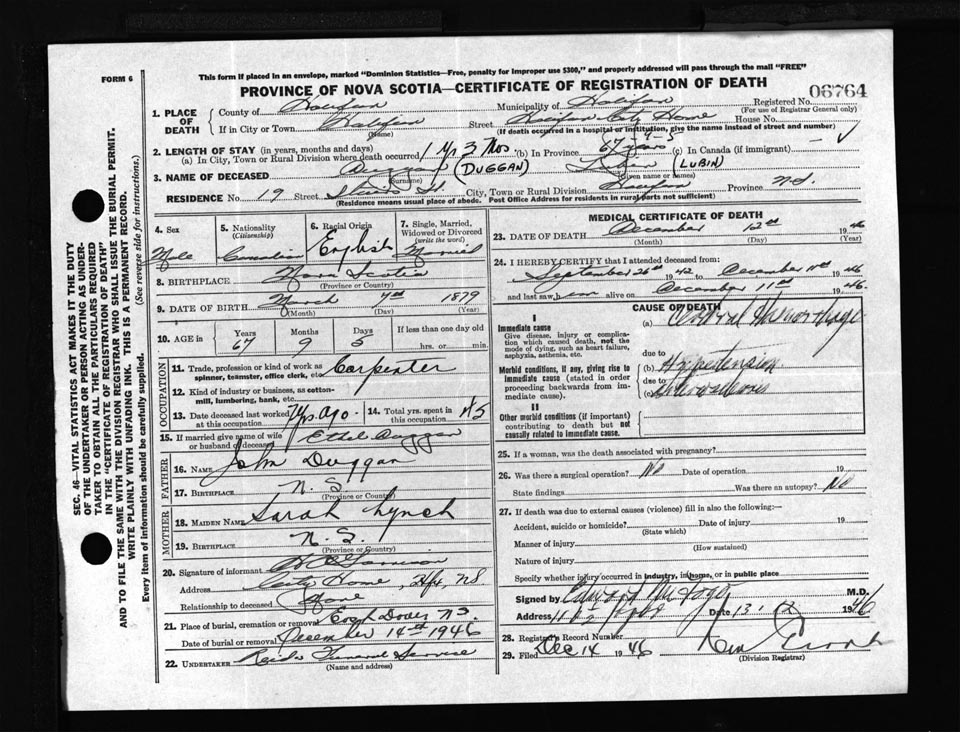 FORM 6
This form if placed in an envelope, marked "Dominion Statistics—Free, penalty for improper use $300," and properly addressed will pass through the mail "FREE"
PROVINCE OF NOVA SCOTIA—CERTIFICATE OF REGISTRATION OF DEATH
06764
1. PLACE OF DEATH County of Halifax Municipality of Halifax Registered No.
(For use of Registrar General only)
If in City or Town Halifax Street Halifax City Home House No.
(Name) (If death occurred in a hospital or institution, give the name instead of street and number)
2. LENGTH OF STAY (in years, months and days)
(a) In City, Town or Rural Division where death occurred 1 Yr 3 Mos (b) In Province 67 years (c) In Canada (if immigrant) —
3. NAME OF DECEASED Duggan (DUGGAN) (LUBIN)
(Surname) (Given name or names)
RESIDENCE No. 19 Street St. City, Town or Rural Division Halifax Province N.S.
(Residence means usual place of abode. Post Office Address for residents in rural parts not sufficient)
SEC. 46—VITAL STATISTICS ACT MAKES IT THE DUTY OF THE UNDERTAKER OR PERSON ACTING AS UNDERTAKER TO OBTAIN ALL THE PARTICULARS REQUIRED IN THE "CERTIFICATE OF REGISTRATION OF DEATH" AND TO FILE THE SAME WITH THE DIVISION REGISTRAR WHO SHALL ISSUE THE BURIAL PERMIT.
WRITE PLAINLY WITH UNFADING INK. THIS IS A PERMANENT RECORD.
Every item of information should be carefully supplied. (See reverse side for instructions.)
4. Sex Male
5. Nationality (Citizenship) Canadian
6. Racial Origin English
7. Single, Married, Widowed or Divorced (write the word) Married
8. BIRTHPLACE Nova Scotia
(Province or Country)
9. DATE OF BIRTH March 4th 1879
(Month) (Day) (Year)
10. AGE in Years 67 Months 9 Days 8 If less than one day old hrs. or min.
OCCUPATION
11. Trade, profession or kind of work as spinner, teamster, office clerk, etc. Carpenter
12. Kind of industry or business, as cotton-mill, lumbering, bank, etc.
13. Date deceased last worked at this occupation Yrs ago. 14. Total yrs. spent in this occupation 45
15. If married give name of wife or husband of deceased Ethel Duggan
FATHER
16. NAME John Duggan
17. BIRTHPLACE N. S.
(Province or Country)
MOTHER
18. MAIDEN NAME Sarah Lynch
19. BIRTHPLACE N. S.
(Province or Country)
20. Signature of informant
Address City Home, Hfx, NS
Relationship to deceased None
21. Place of burial, cremation or removal East Dover N.S.
Date of burial or removal December 14th 1946
22. UNDERTAKER Funeral Service
(Name and address)
MEDICAL CERTIFICATE OF DEATH
23. DATE OF DEATH December 12th 1946
(Month) (Day) (Year)
24. I HEREBY CERTIFY that I attended deceased from:
September 26th 1942 to December 11th 1946
and last saw him alive on December 11th 1946.
CAUSE OF DEATH
I
Immediate cause
Give disease, injury or complication which caused death, not the mode of dying, such as heart failure, asphyxia, asthenia, etc.
(a) Cerebral Haemorrhage
due to
Morbid conditions, if any, giving rise to immediate cause (stated in order proceeding backwards from immediate cause).
(b) Hypertension
due to
(c)
II
Other morbid conditions (if important) contributing to death but not causally related to immediate cause.
25. If a woman, was the death associated with pregnancy?
26. Was there a surgical operation? No Date of operation 19
State findings Was there an autopsy? No
27. If death was due to external causes (violence) fill in also the following:—
Accident, suicide or homicide? Date of injury 19
(State which)
Manner of injury
(How sustained)
Nature of injury
Specify whether injury occurred in industry, in home, or in public place
Signed by M.D.
Address Date 13.12 1946
28. Registrar's Record Number
29. Filed Dec 14 1946
(Division Registrar)